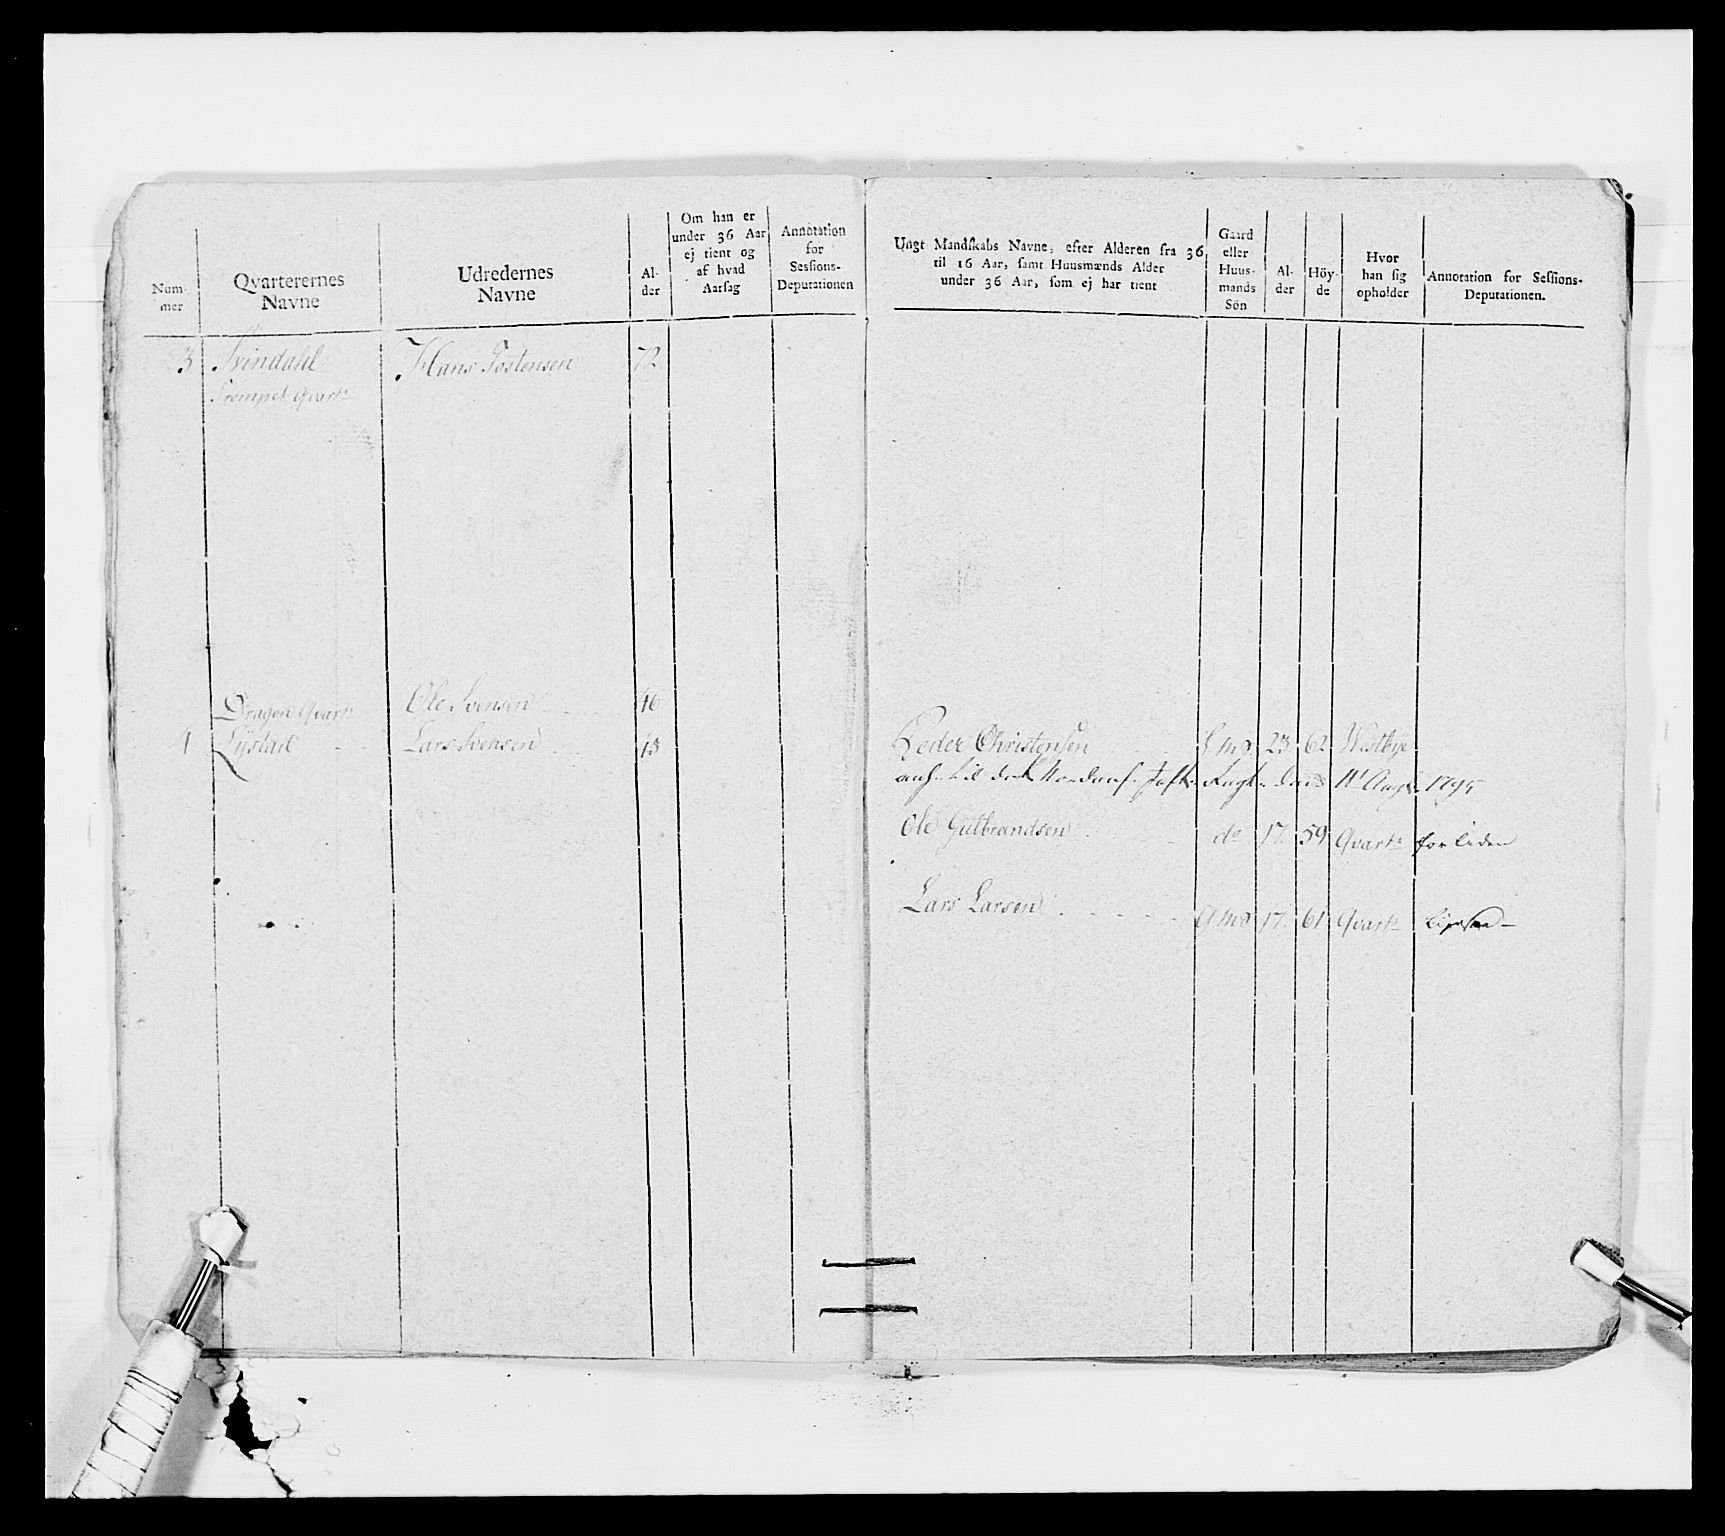 Num-
mer
Qvarterernes
Navne
Udredernes
Navne
Al-
der
Om han er
under 36 Aar
ej tient og
af hvad
Aarsag
Annotation
for
Sessions-
Deputationen
Ungt Mandskabs Navne, efter Alderen fra 36
til 16 Aar, samt Huusmænds Alder
under 36 Aar, som ej har tient
Gaard
eller
Huus-
mands
Sön
Al-
der
Höy-
de
Hvor
han sig
opholder
Annotation for Sessions-
Deputationen.
3 Svindahl Hans Tostensen 72
Trompet Qvart
Dragon Qvart Ole Svensen 46
4 Lystad Lars Svensen 43 Peder Christensen 23 62 Westbye
til Aug 1795
Ole Gulbrandsen do 17 59 Qvart for liden
Lars Larsen 17 61 Qvart